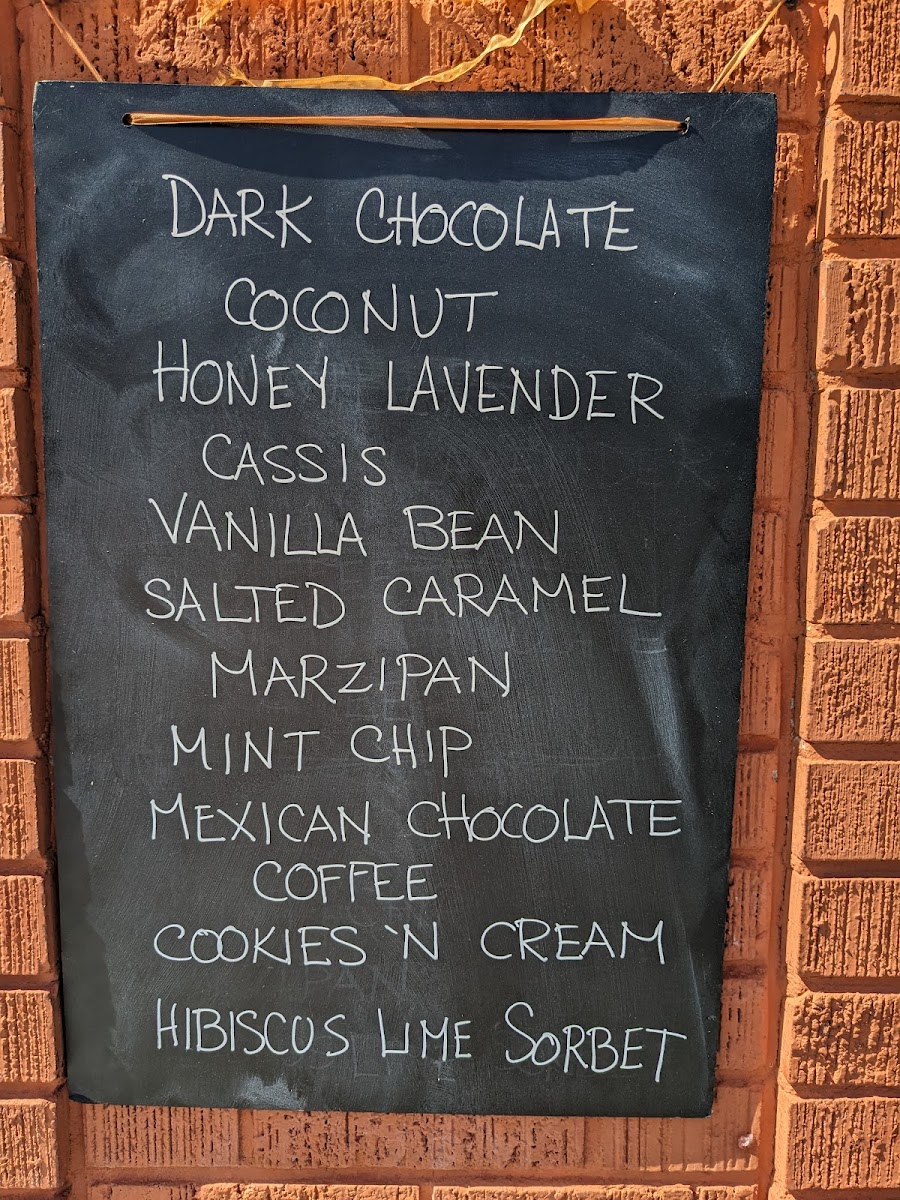 DARK CHOCOLATE
COCONUT
HONEY LAVENDER
CASSIS
VANILLA BEAN
SALTED CARAMEL
MARZIPAN
MINT CHIP
MEXICAN CHOCOLATE
COFFEE
COOKIES 'N CREAM
HIBISCUS LIME SORBET